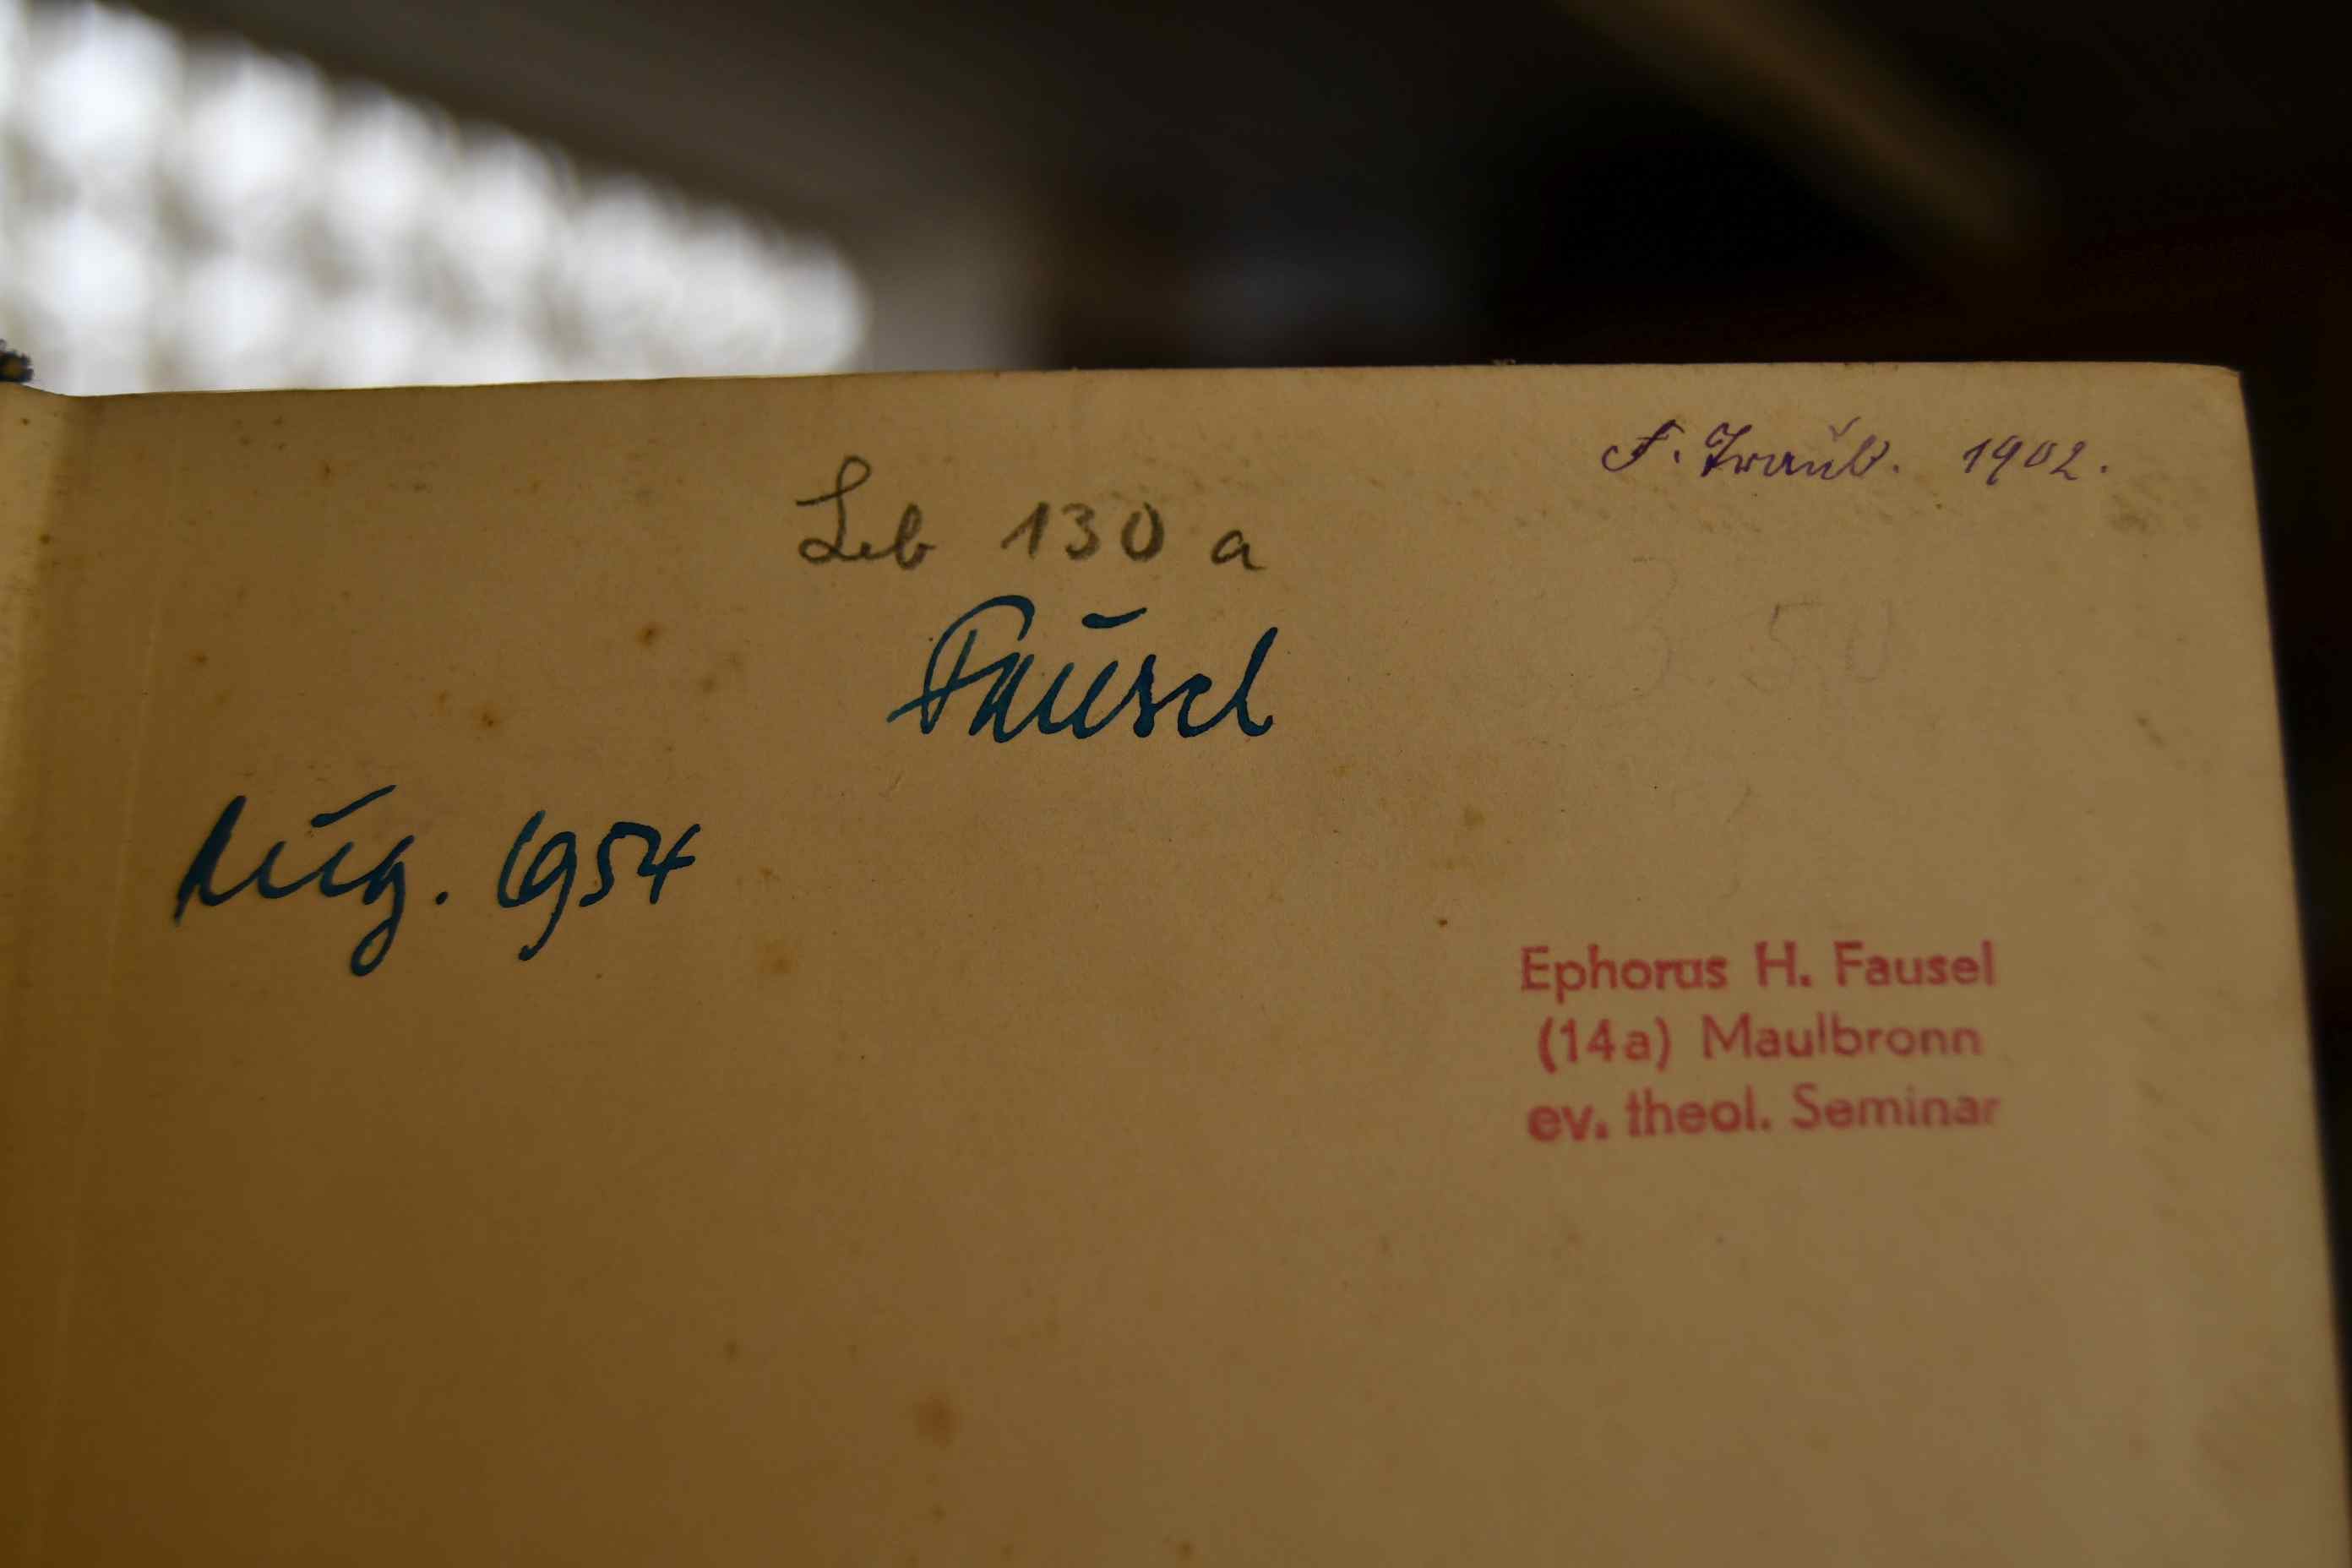 F. Traub. 1902.
Leb 130 a
3.50
Fausel
Aug. 1954
Ephorus H. Fausel
(14a) Maulbronn
ev. theol. Seminar